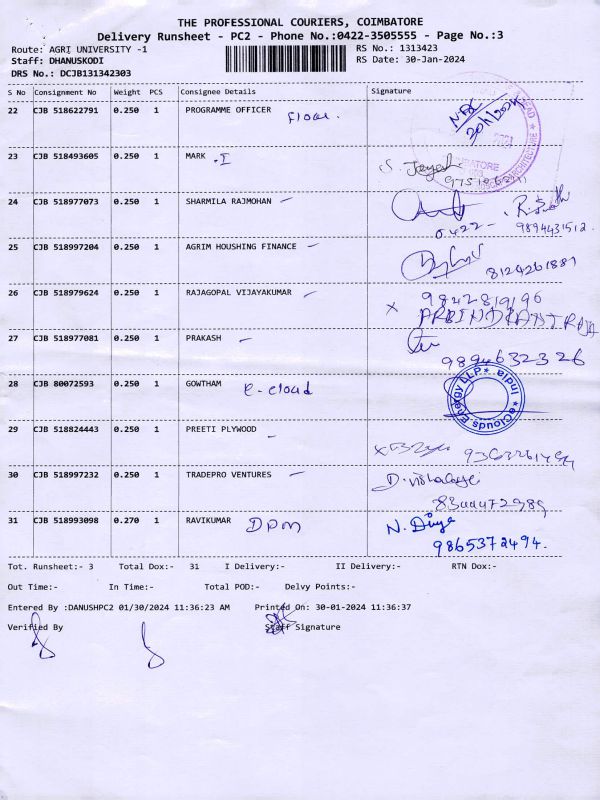 THE PROFESSIONAL COURIERS, COIMBATORE
Delivery Runsheet - PC2 - Phone No.:0422-3505555 - Page No.:3
Route: AGRI UNIVERSITY -1
RS No.: 1313423
Staff: DHANUSKODI
RS Date: 30-Jan-2024
DRS No.: DCJB131342303
S No Consignment No Weight PCS Consignee Details Signature
22 CJB 518622791 0.250 1 PROGRAMME OFFICER
23 CJB 518493605 0.250 1 MARK .I
24 CJB 518977073 0.250 1 SHARMILA RAJMOHAN
0422-
9894431512
25 CJB 518997204 0.250 1 AGRIM HOUSHING FINANCE
8124261881
26 CJB 518979624 0.250 1 RAJAGOPAL VIJAYAKUMAR
x 9842819196
27 CJB 518977081 0.250 1 PRAKASH
9894632326
28 CJB 80072593 0.250 1 GOWTHAM e-cloud
eClouds Energy LLP * India *
29 CJB 518824443 0.250 1 PREETI PLYWOOD
30 CJB 518997232 0.250 1 TRADEPRO VENTURES
31 CJB 518993098 0.270 1 RAVIKUMAR DPM N. Divya
9865372494.
Tot. Runsheet:- 3 Total Dox:- 31 I Delivery:- II Delivery:- RTN Dox:-
Out Time:- In Time:- Total POD:- Delvy Points:-
Entered By :DANUSHPC2 01/30/2024 11:36:23 AM Printed On: 30-01-2024 11:36:37
Verified By Staff Signature